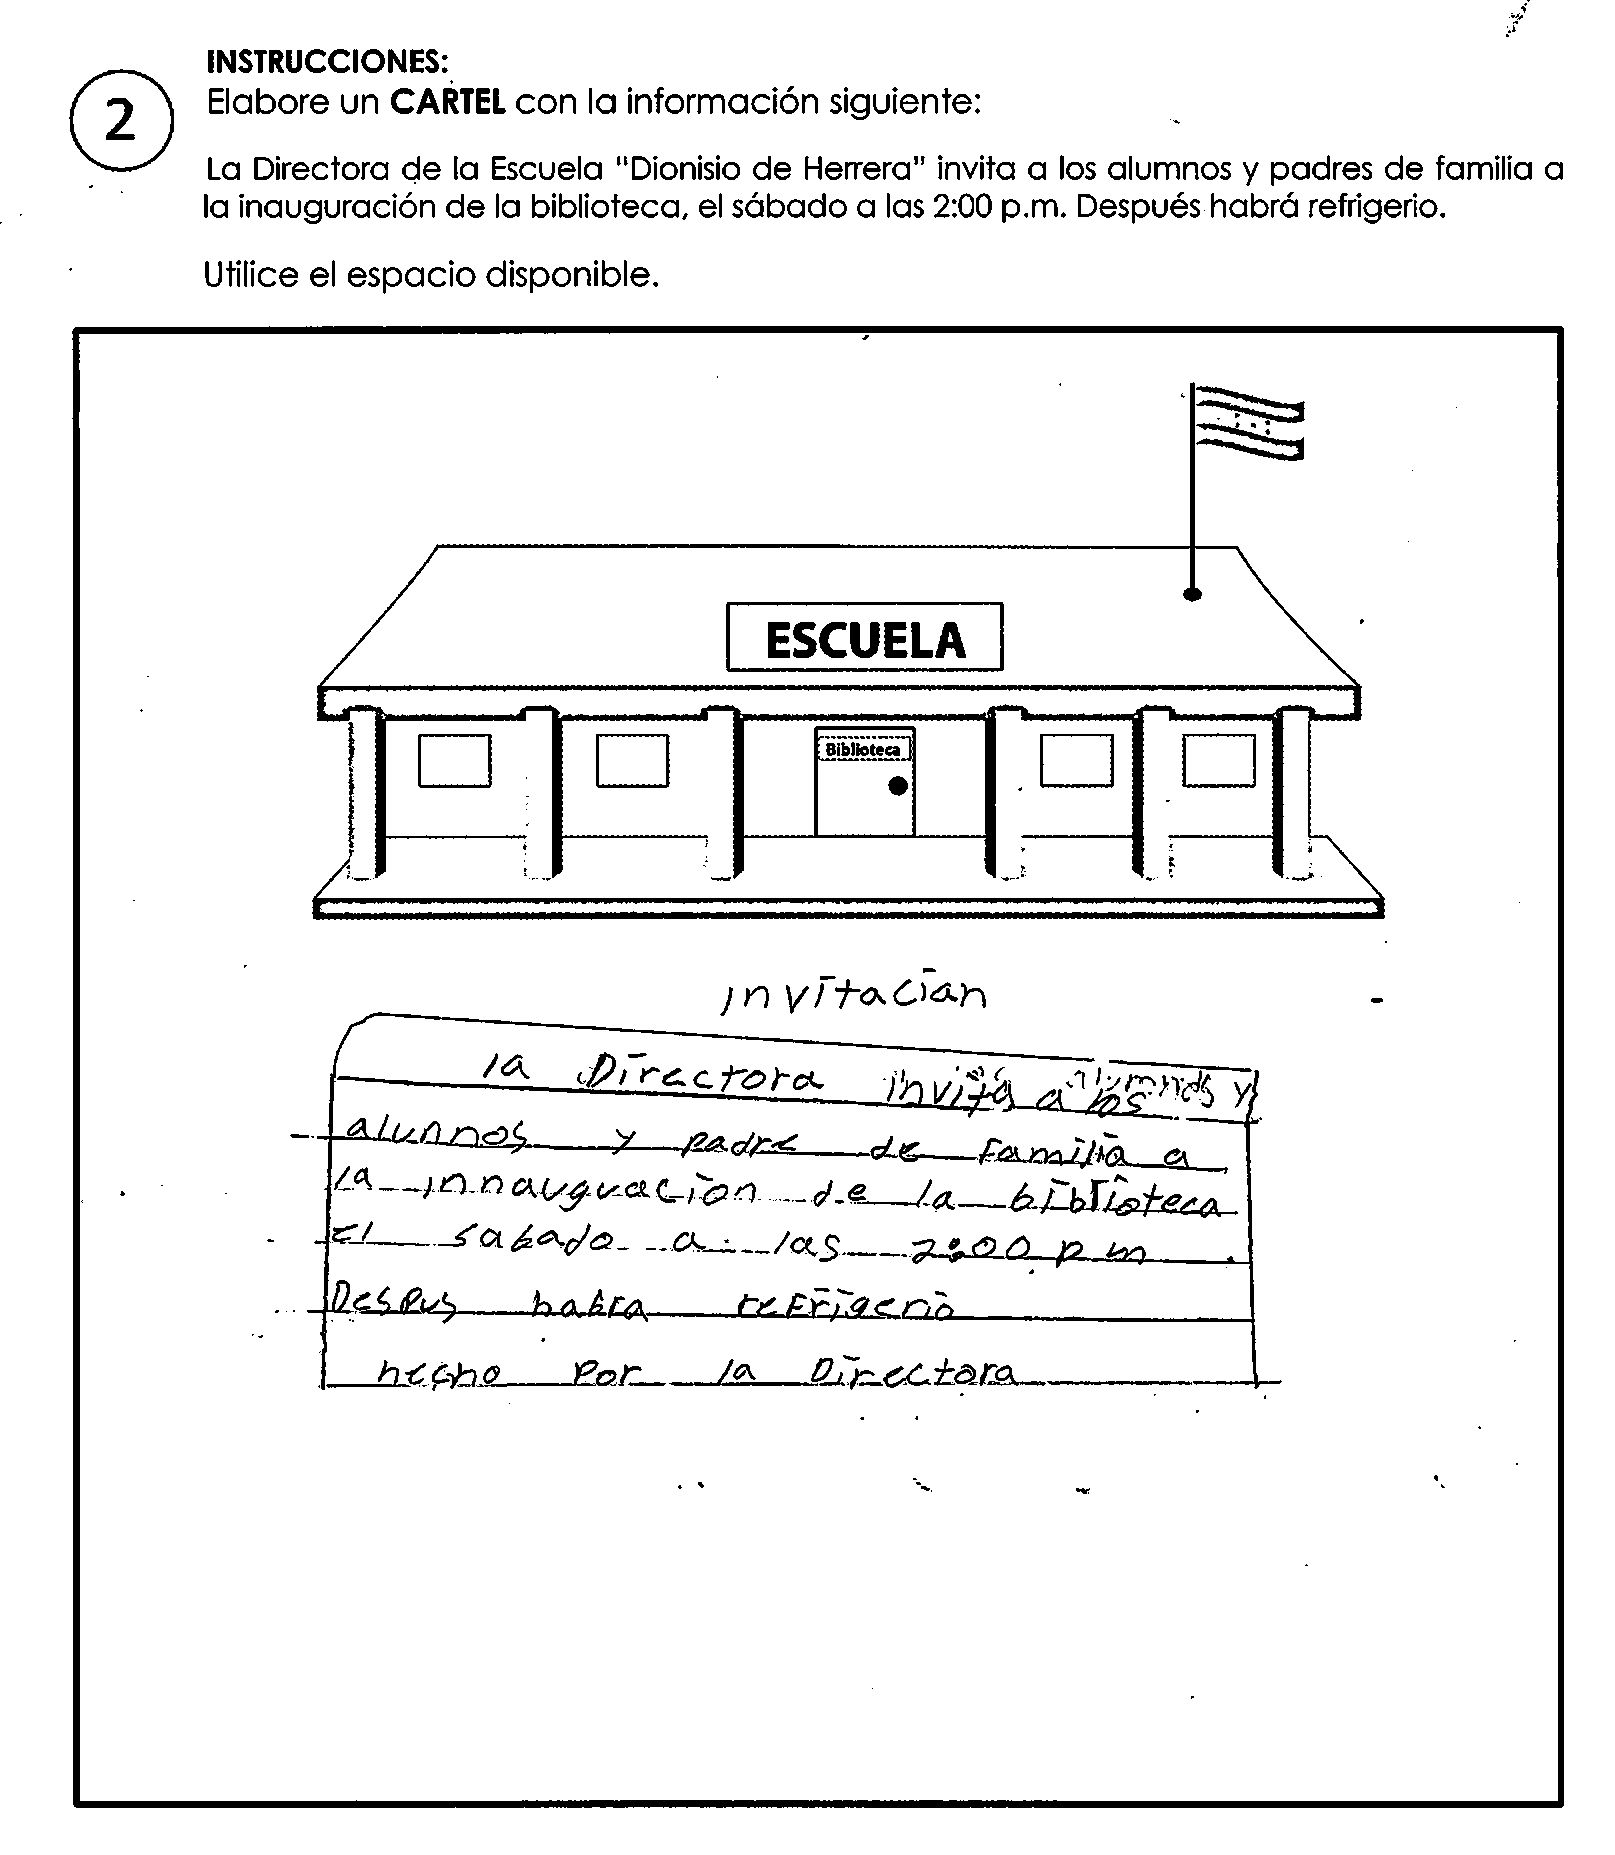 INSTRUCCIONES:
2
Elabore un CARTEL con la información siguiente:
La Directora de la Escuela "Dionisio de Herrera" invita a los alumnos y padres de familia a
la inauguración de la biblioteca, el sábado a las 2:00 p.m. Después habrá refrigerio.
Utilice el espacio disponible.
ESCUELA
Biblioteca
invitacian
la Directora invita a los alumnos y
alunnos y padre de familia a
la innauguacion de la biblioteca
El sabado a las 2:00 p m.
Despus habra refrigerio
hecho por la Directora